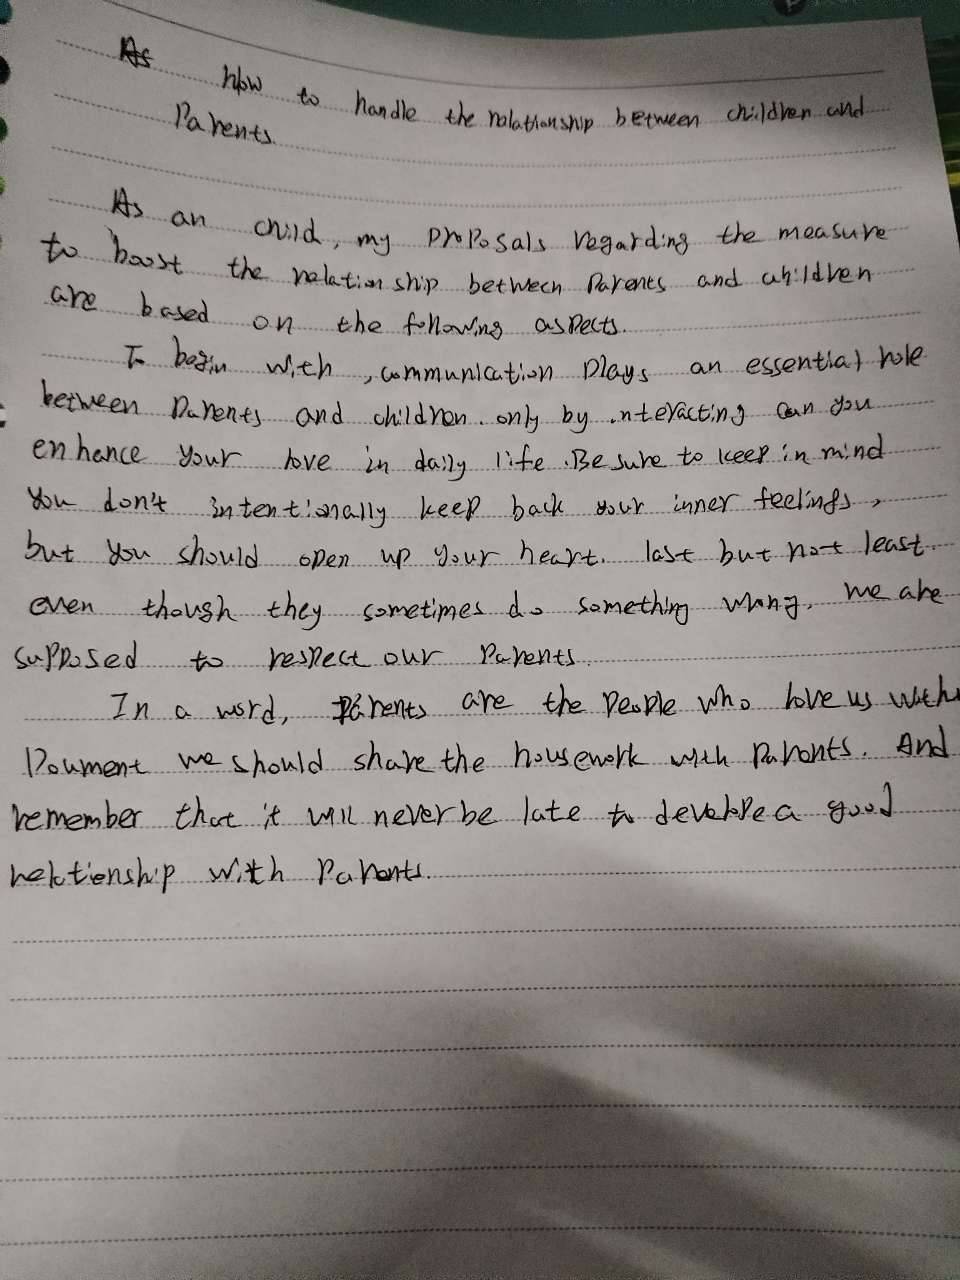 How to handle the relationship between children and
Parents.
As an child, my proposals regarding the measure
to boost the relationship between Parents and children
are based on the following aspects.
To begin with, communication Plays an essential role
between Parents and children. only by interacting can you
enhance your love in daily life. Be sure to keep in mind
You don't intentionally keep back your inner feelings,
but you should open up your heart. last but not least.
even though they sometimes do something wrong, we are
supposed to respect our Parents.
In a word, Parents are the People who love us with
we should share the housework with Parents. And
remember that it will never be late to a good
with Parents.